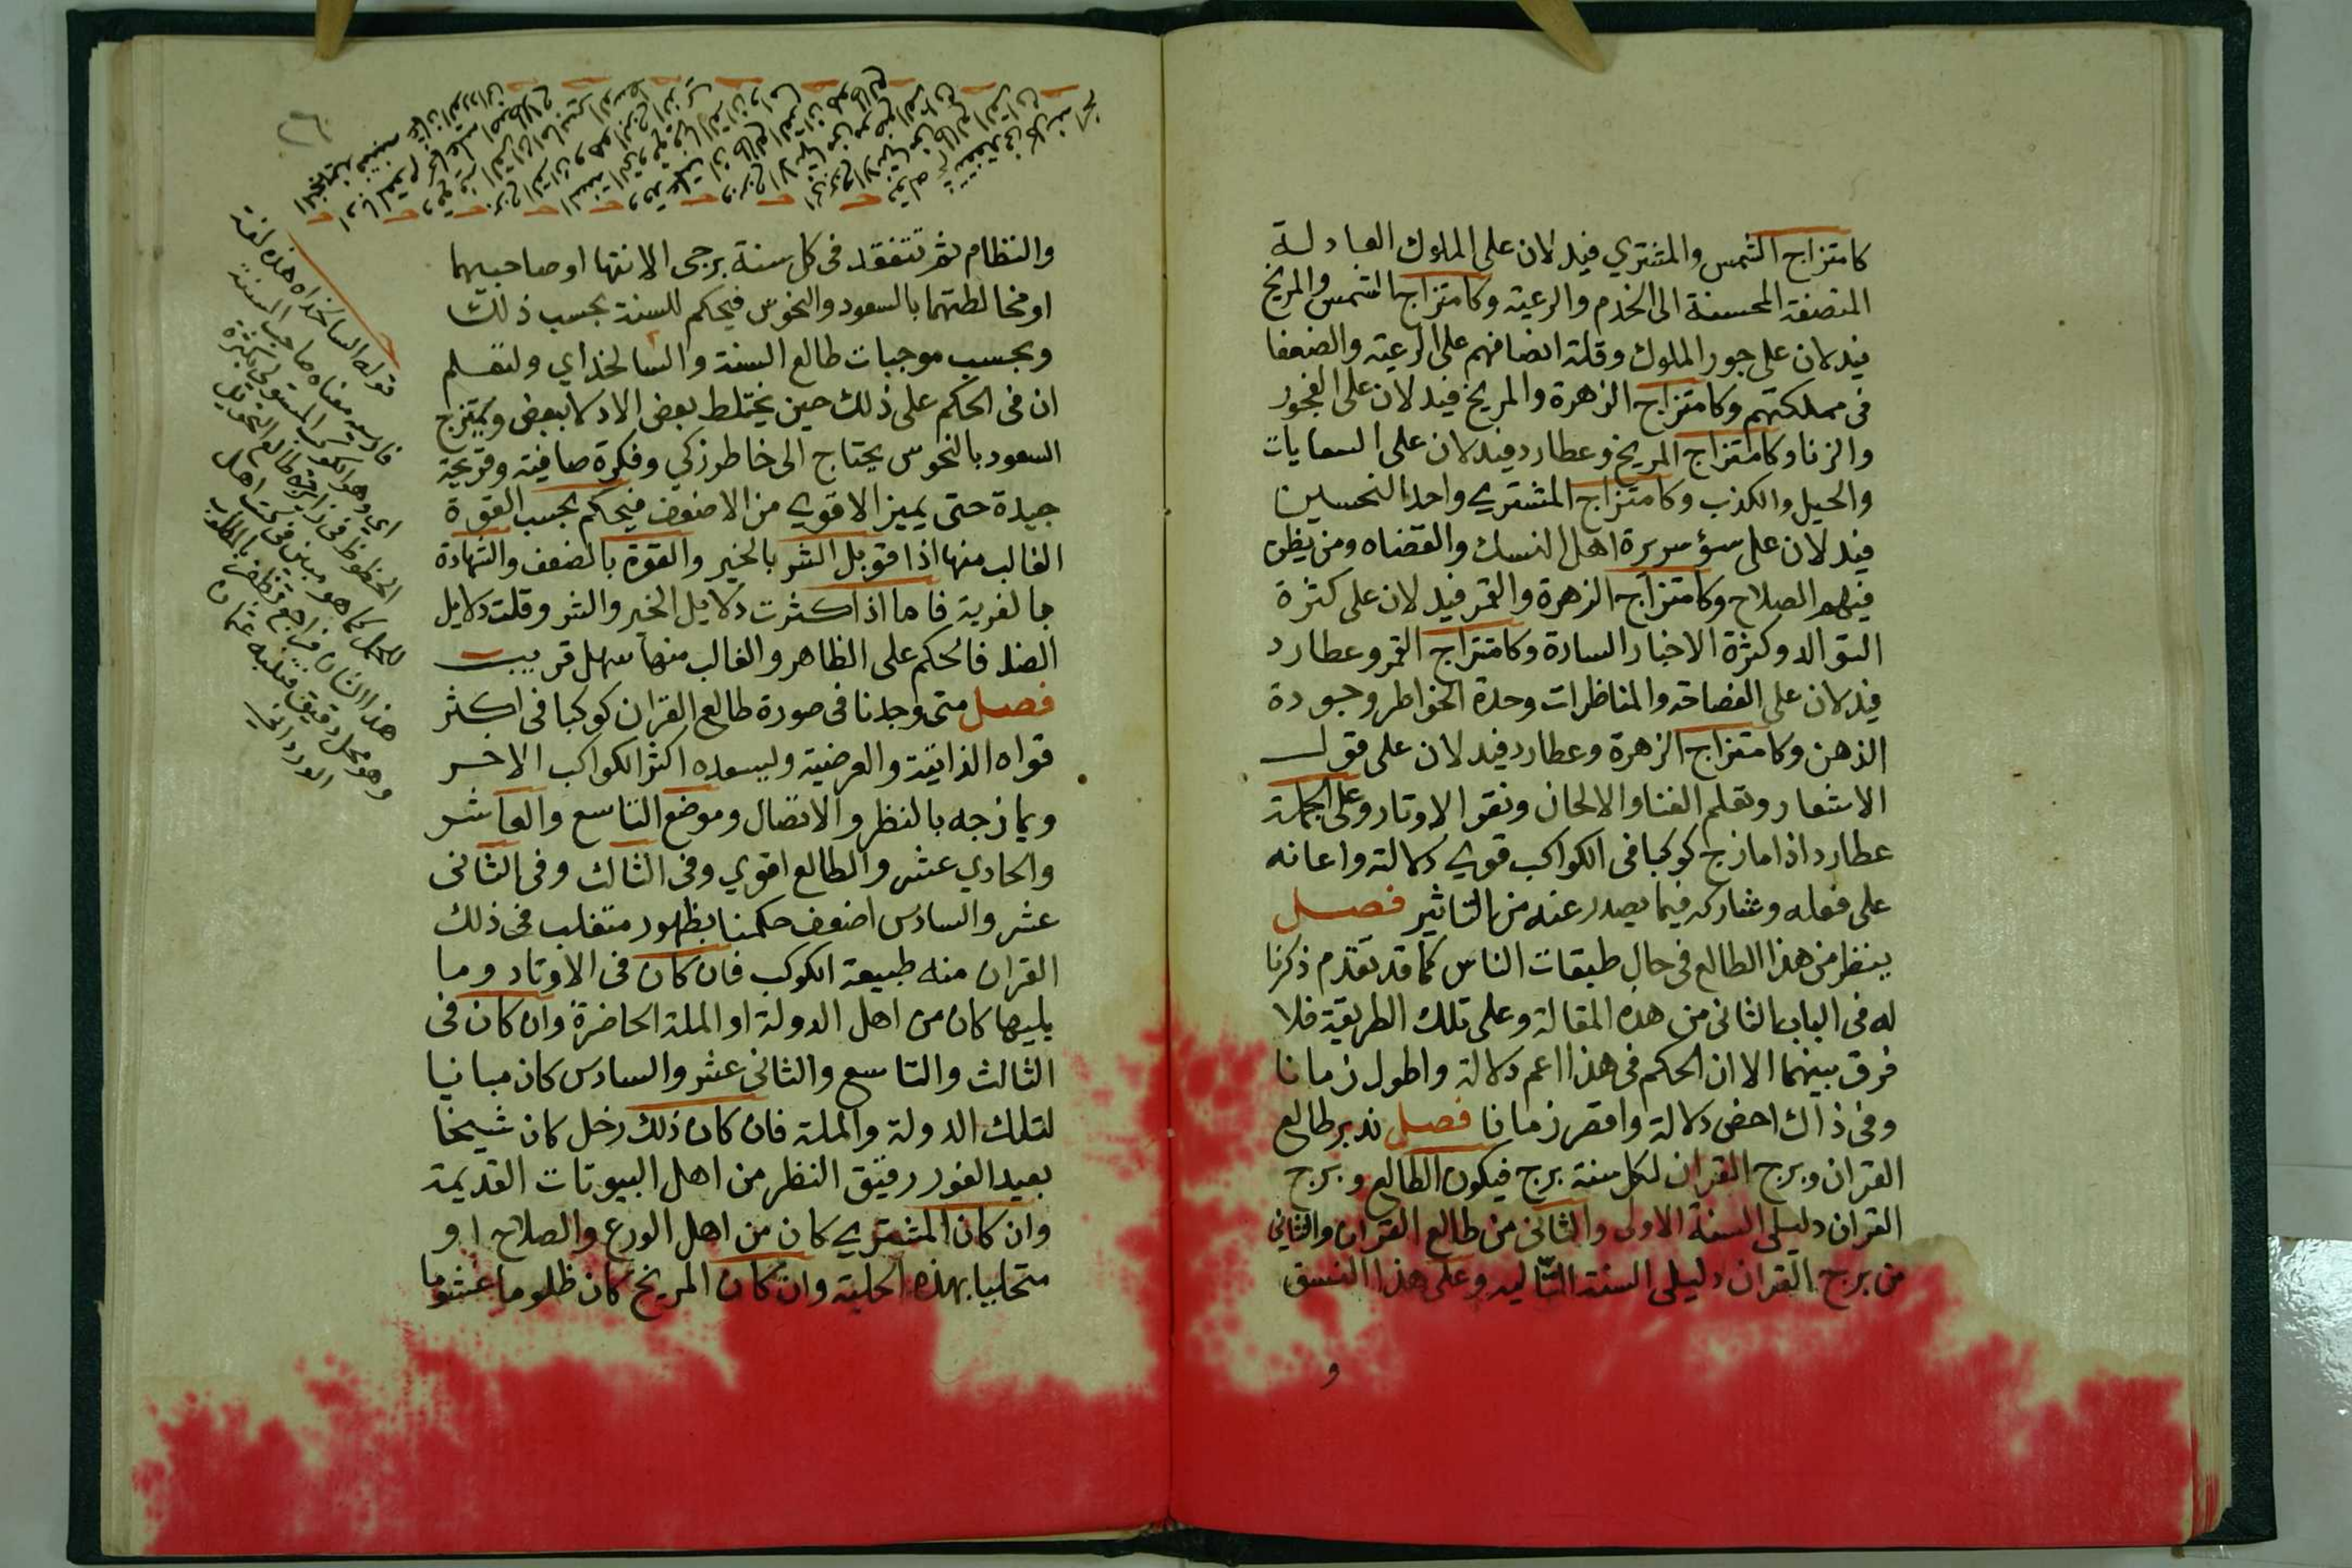 كامتزاج الشمس والمشتري فيدلان على الملوك العادلة
المنصفة المحسنة الى الخدم والرعية وكامتزاج الشمس والمريخ
فيدلان على جور الملوك وقلة انصافهم على الرعية والضعفا
فى مملكتهم وكامتزاج الزهرة والمريخ فيدلان على الفجور
والزنا وكامتزاج المريخ وعطارد فيدلان على السعايات
والحيل والكذب وكامتزاج المشتري واحد النحسين
فيدلان على سؤ سريرة اهل النسك والقضاه ومن يظن
فيهم الصلاح وكامتزاج الزهرة والقمر فيدلان على كثرة
التوالد وكثرة الاخبار السارة وكامتزاج القمر وعطارد
فيدلان على الفصاحة والمناظرات وحدة الخواطر وجودة
الذهن وكامتزاج الزهرة وعطارد فيدلان على قول
الاشعار وتعلم الغنا والالحان ونقر الاوتار وعلى الجملة
عطارد اذا مازج كوكبا فى الكواكب قوي دلالته واعانه
على فعله وشاركه فيما يصدر عنه من التاثير فصل
ينظر من هذا الطالع فى حال طبقات الناس كما قد تقدم ذكرنا
له فى الباب الثانى من هذه المقالة وعلى تلك الطريقة فلا
فرق بينهما الا ان الحكم فى هذا اعم دلالة واطول زمانا
وفى ذاك اخص دلالة واقصر زمانا فصل ندير طالع
القران وبرج القران لكل سنة برج فيكون الطالع وبرج
القران دليلى السنة الاولى والثانى من طالع القران والثانى
من برج القران دليلى السنة التاليه وعلى هذا النسق
و
والنظام ثم تتفقد فى كل سنة برجى الانتها او صاحبيهما
او مخالطتهما بالسعود والنحوس فيحكم للسنة بحسب ذلك
وبحسب موجبات طالع السنة والسالخذاي ولتعلم
ان فى الحكم على ذلك حين يختلط بعض الادلا ببعض ويمتزج
السعود بالنحوس يحتاج الى خاطر زكي وفكرة صافية وقريحة
جيدة حتى يميز الاقوي من الاضعف فيحكم بحسب القوة
الغالب منها اذا قوبل الشر بالخير والقوة بالضعف والشهادة
بالغربة فاما اذا كثرت دلايل الخير والشر وقلت دلايل
الضد فالحكم على الظاهر والغالب منها سهل قريب
فصل متى وجدنا فى صورة طالع القران كوكبا فى اكثر
قواه الذاتية والعرضية ويسعده اكثر الكواكب الاخر
ويمازجه بالنظر والاتصال وموضع التاسع والعاشر
والحادي عشر والطالع اقوي وفى الثالث وفى الثانى
عشر والسادس اضعف حكمنا بظهور متغلب فى ذلك
القران منه طبيعة الكوكب فان كان فى الاوتاد وما
يليها كان من اهل الدولة او الملة الحاضرة وان كان فى
الثالث والتاسع والثانى عشر والسادس كان مباينا
لتلك الدولة والملة فان كان ذلك زحل كان شيخا
بعيد الغور رقيق النظر من اهل البيوتات القديمة
وان كان المشتري كان من اهل الورع والصلاح او
متحليا بهذه الحلية وان كان المريخ كان ظلوما غشوما
قوله السالخذاه هذه لغة
فارسيه معناه صاحب السنة
اي وهو الكوكب المستولي بكثرة
الحظوظ فى زايرجة طالع التحويل
للعمل كما هو مبين فى كتب اهل
هذا الشان فراجع تظفر بالمطلوب
وهو محل دقيق فتنبه عثمان
الورداني